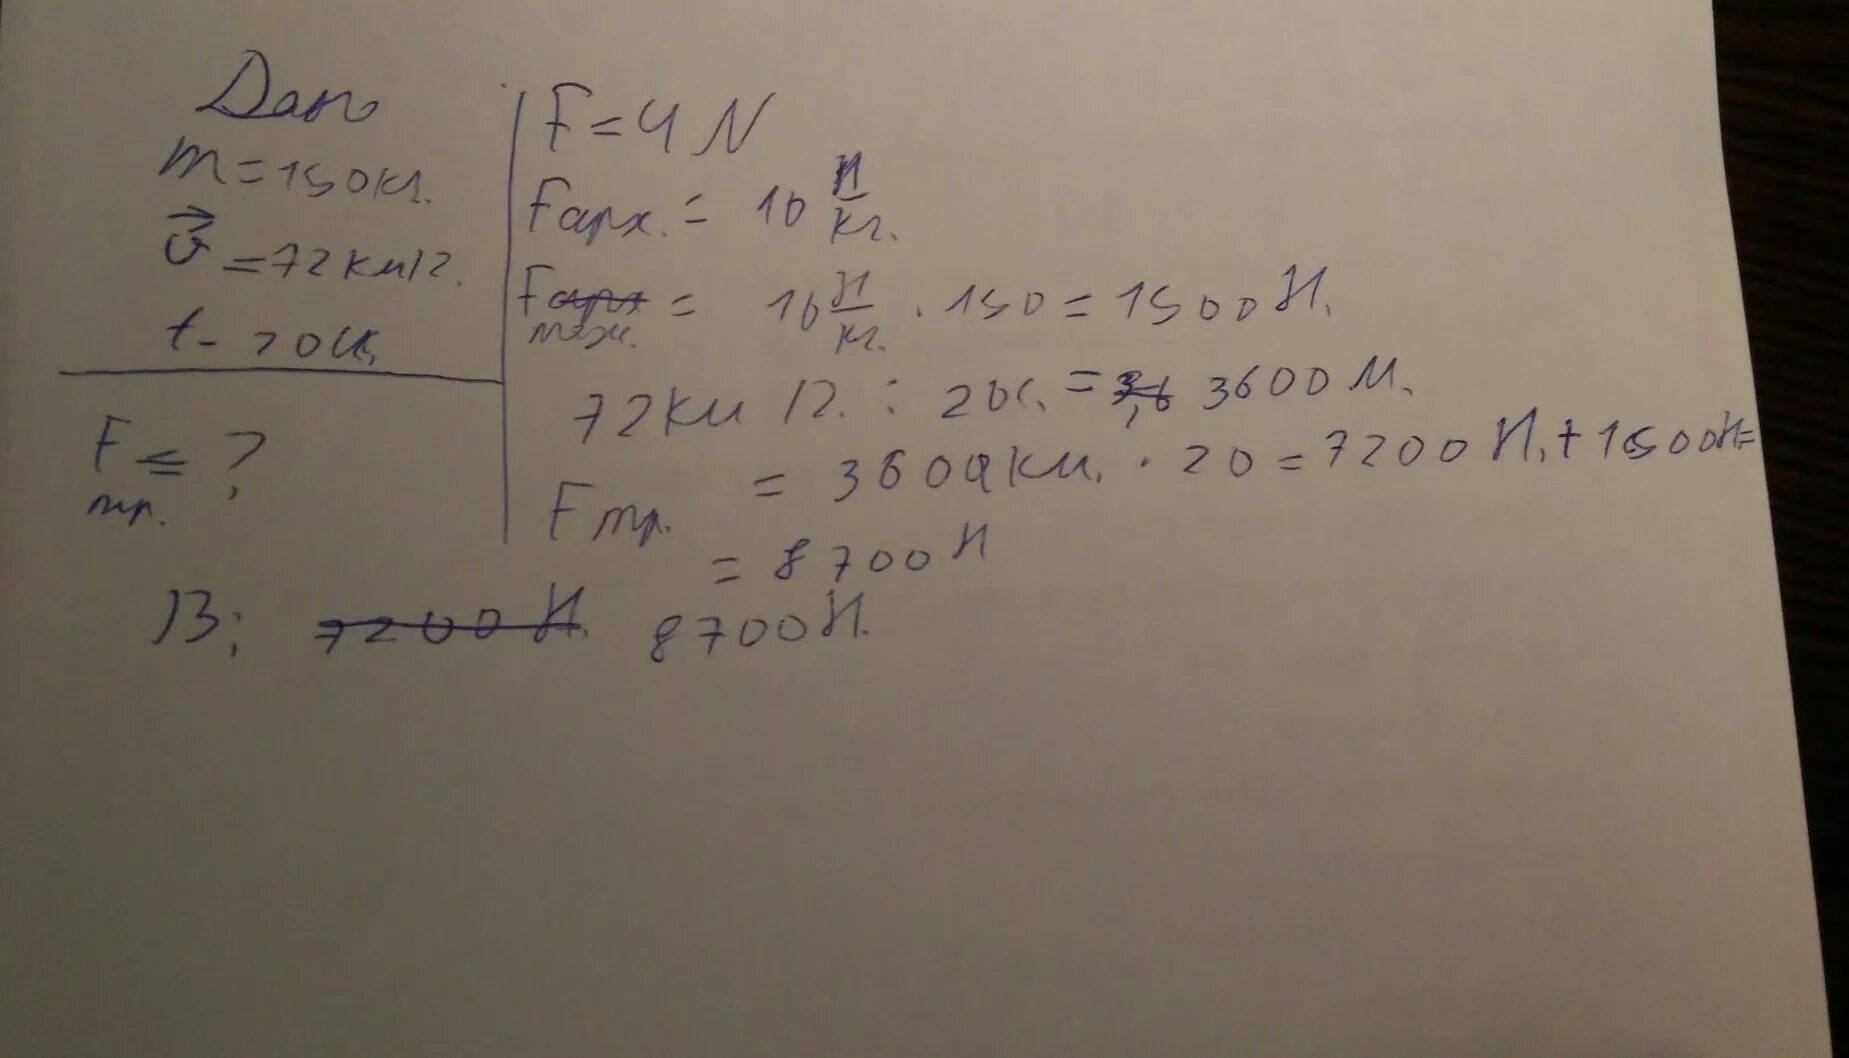 Дано
m = 150 кг.
v = 72 км/г.
t - 20 с.
F тр. = ?
F = ЧN
Fарх. = 10 Н/кг.
Fарх тяж. = 10 Н/кг. · 150 = 1500 Н.
72 км/г. : 20с. = 3,6 3600 м.
F тр. = 3600 км. · 20 = 7200 Н. + 1500 Н =
= 8700 Н
В; 7200 Н. 8700 Н.